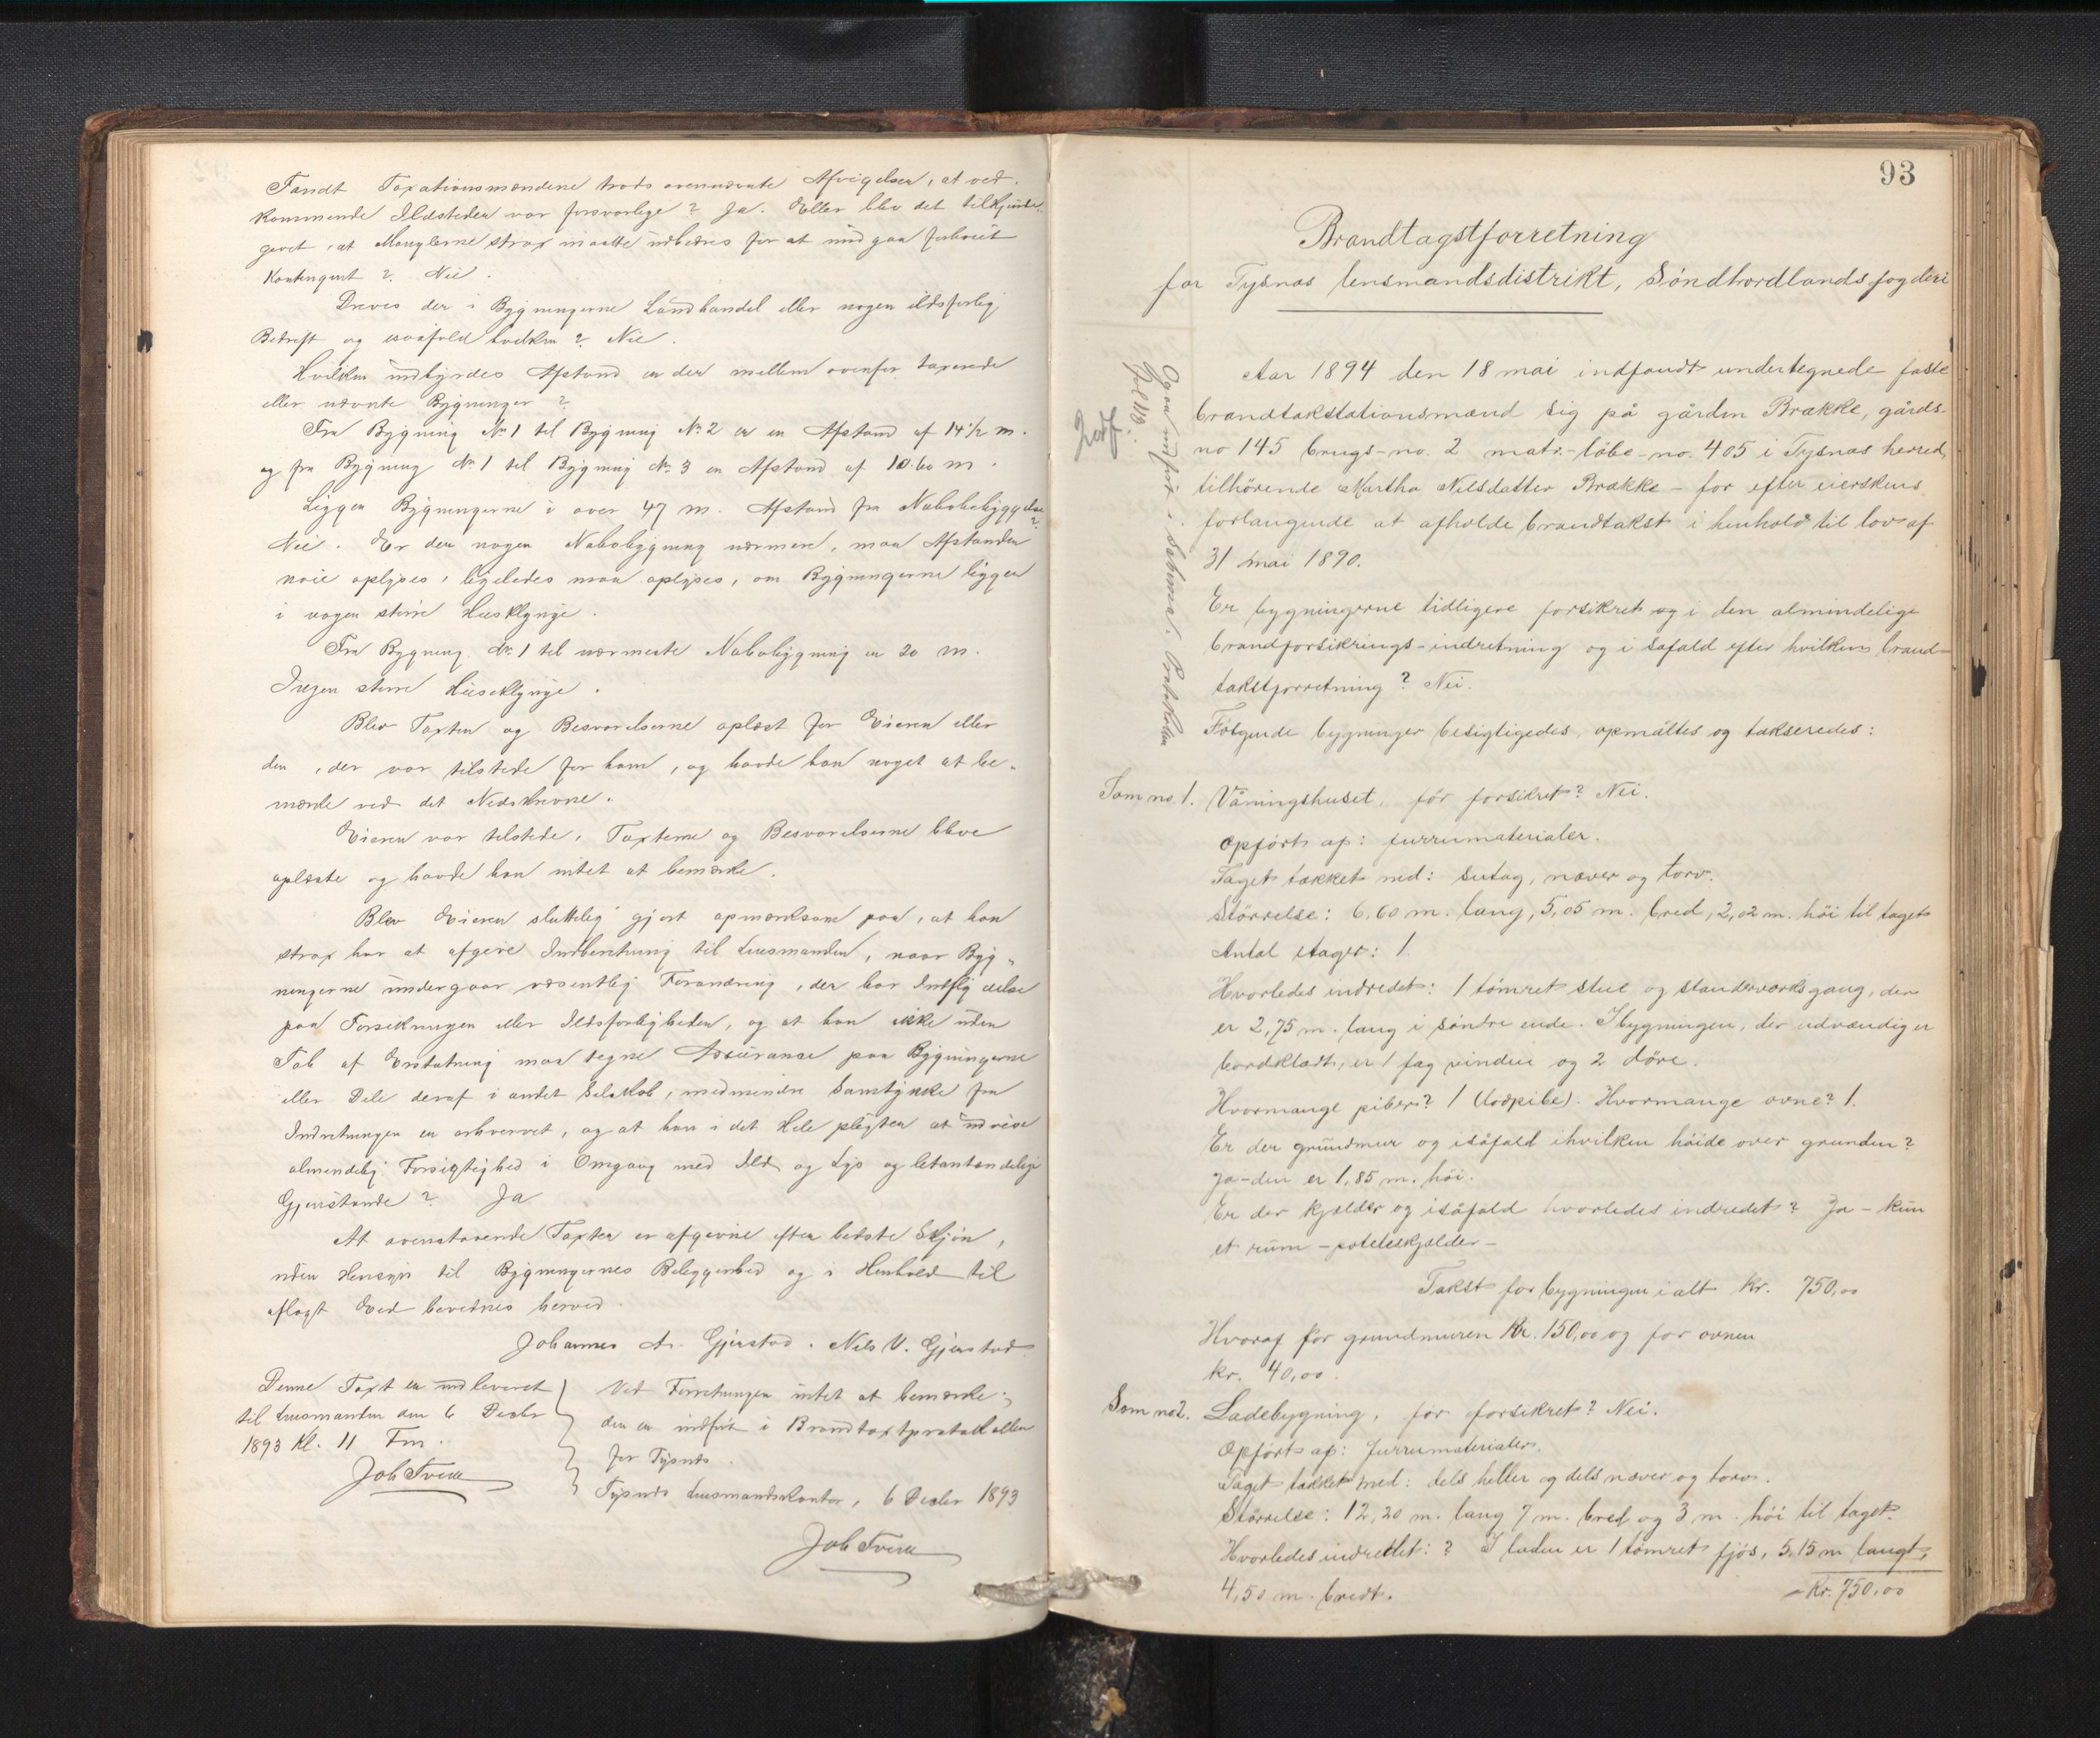 Fandt Taxationsmændene trods ovennævnte Afvigelser, at ved-
kommende Ildsteder var forsvarlige? Ja. Eller blev det tilkjende-
givet, at Manglerne strax maatte udbedres for at undgaa forhøiet
Kontingent? Nei.
Dreves der i Bygningerne Landhandel eller nogen ildsfarlig
Bedrift og isaafald hvilken? Nei.
Hvilken indbyrdes Afstand er der mellem ovenfor taxerede
eller nævnte Bygninger?
Fra Bygning No 1 til Bygning No 2 er en Afstand af 14 1/2 m.
og fra Bygning No 1 til Bygning No 3 en Afstand af 10.60 m.
Ligger Bygningerne i over 47 m. Afstand fra Nabobebyggelse?
Nei. Er der nogen Nabobygning nærmere, maa Afstanden
nøie oplyses, ligeledes maa oplyses, om Bygningerne ligger
i nogen større Husklynge.
Fra Bygning No 1 til nærmeste Nabobygning er 20 m.
Ingen større Huseklynge.
Blev Taxten og Besvarelserne oplæst for Eieren eller
den, der var tilstede for ham, og havde han noget at be-
mærke ved det Nedskrevne.
Eieren var tilstede, Taxterne og Besvarelserne bleve
oplæste og havde han intet at bemærke.
Blev Eieren sluttelig gjort opmærksom paa, at han
strax har at afgive Indberetning til Lensmanden, naar Byg-
ningerne undergaar væsentlig Forandring, der har Indflydelse
paa Forsikringen eller Ildsfarligheden, og at han ikke uden
Tab af Erstatning maa tegne Assurance paa Bygningerne
eller Dele deraf i andet Selskab, medmindre Samtykke fra
Indretningen er erhvervet, og at han i det Hele pligter at udvise
almindelig Forsigtighed i Omgang med Ild og Lys og letantændelige
Gjenstande? Ja
At ovenstaaende Taxter er afgivne efter bedste Skjøn,
uden Hensyn til Bygningernes Beliggenhed og i Henhold til
aflagt Eed bevidnes herved.
Johannes A. Gjerstad. Nils V. Gjerstad
Denne Taxt er indleveret
til Lensmanden den 6 Decbr
1893 Kl. 11 Fm.
Joh Tveit
Ved Forretningen intet at bemærke;
den er indført i Brandtaxtprotokollen
for Tysnes.
Tysnes Lensmandskontor, 6 Decbr 1893
Joh Tveit
93
Brandtagstforretning
for Tysnæs lensmandsdistrikt, Söndhordlands fogderi
Aar 1894 den 18 mai indfandt undertegnede faste
brandtakstationsmænd sig på gården Brække, gårds-
no 145 brugs-no. 2 matr.-löbe-no. 405 i Tysnæs herred,
tilhörende Martha Nilsdatter Brække - for efter eierskens
forlangende at afholde brandtakst i henhold til lov af
31 mai 1890.
Er bygningerne tidligere forsikret og i den almindelige
brandforsikrings-indretning og i såfald efter hvilken brand-
takstforretning? Nei.
Fölgende bygninger besigtigedes, opmåltes og takseredes:
Som no 1. Våningshuset, för forsikret? Nei.
Opfört af: furrumaterialer.
Taget tækket med: sutag, næver og torv.
Störrelse: 6,60 m. lang, 5,05 m. bred, 2,02 m. höi til taget
Antal etager: 1.
Hvorledes indredet: 1 tömret stue og standerværksgang, der
er 2,75 m. lang i söndre ende. I bygningen, der udvændig er
bordklædt, er 1 fag vindu og 2 döre.
Hvormange piber? 1 (lodpibe). Hvormange ovne? 1.
Er der grundmur og isåfald ihvilken höide over grunden?
Ja - den er 1,85 m. höi.
Er der kjælder og isåfald hvorledes indredet? Ja - kun
et rum - poteteskjælder -
Takst for bygningen i alt kr. 750,00
Hvoraf for grundmuren kr. 150,00 og for ovnen
kr. 40,00.
Som no 2. Ladebygning, för forsikret? Nei.
Opfört af: furrumaterialer.
Taget tækket med: dels heller og dels næver og torv.
Störrelse: 12,20 m. lang 7 m. bred og 3 m. höi til taget.
Hvorledes indredet:? I laden er 1 tömret fjös, 5,15 m langt,
4,50 m. bredt.
- kr. 750,00